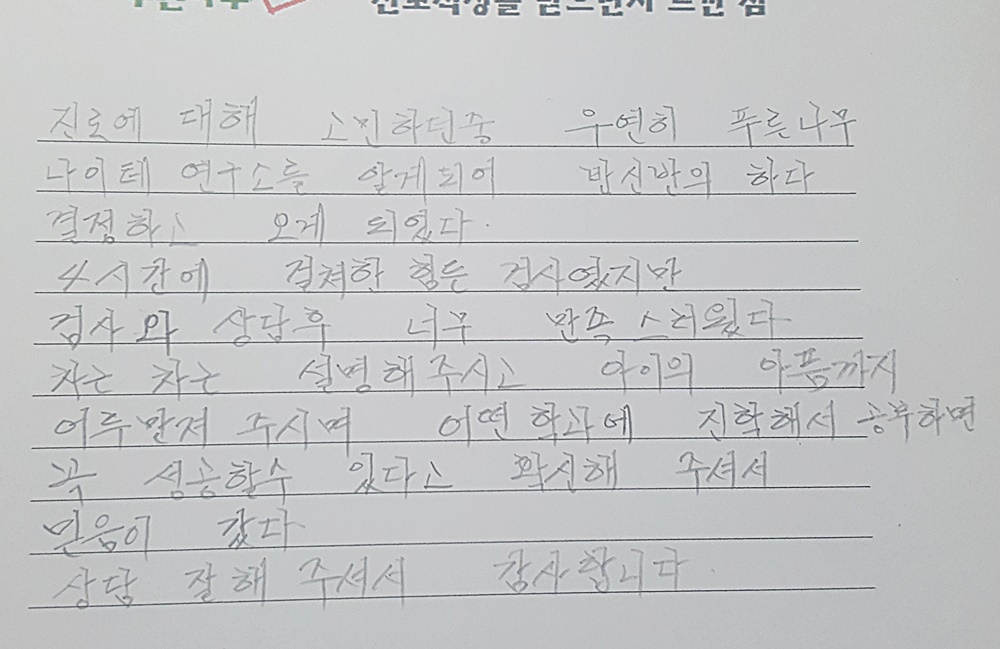 진로에 대해 고민하던중 우연히 푸른나무
나이테 연구소를 알게되어 반신반의 하다
결정하고 오게 되었다.
4시간에 걸쳐한 힘든 검사였지만
검사와 상담후 너무 만족스러웠다
차근차근 설명해주시고 아이의 아픔까지
어루만져 주시며 어떤 학과에 진학해서 공부하면
꼭 성공할수 있다고 확신해 주셔서
믿음이 갔다
상담 잘해 주셔서 감사합니다.